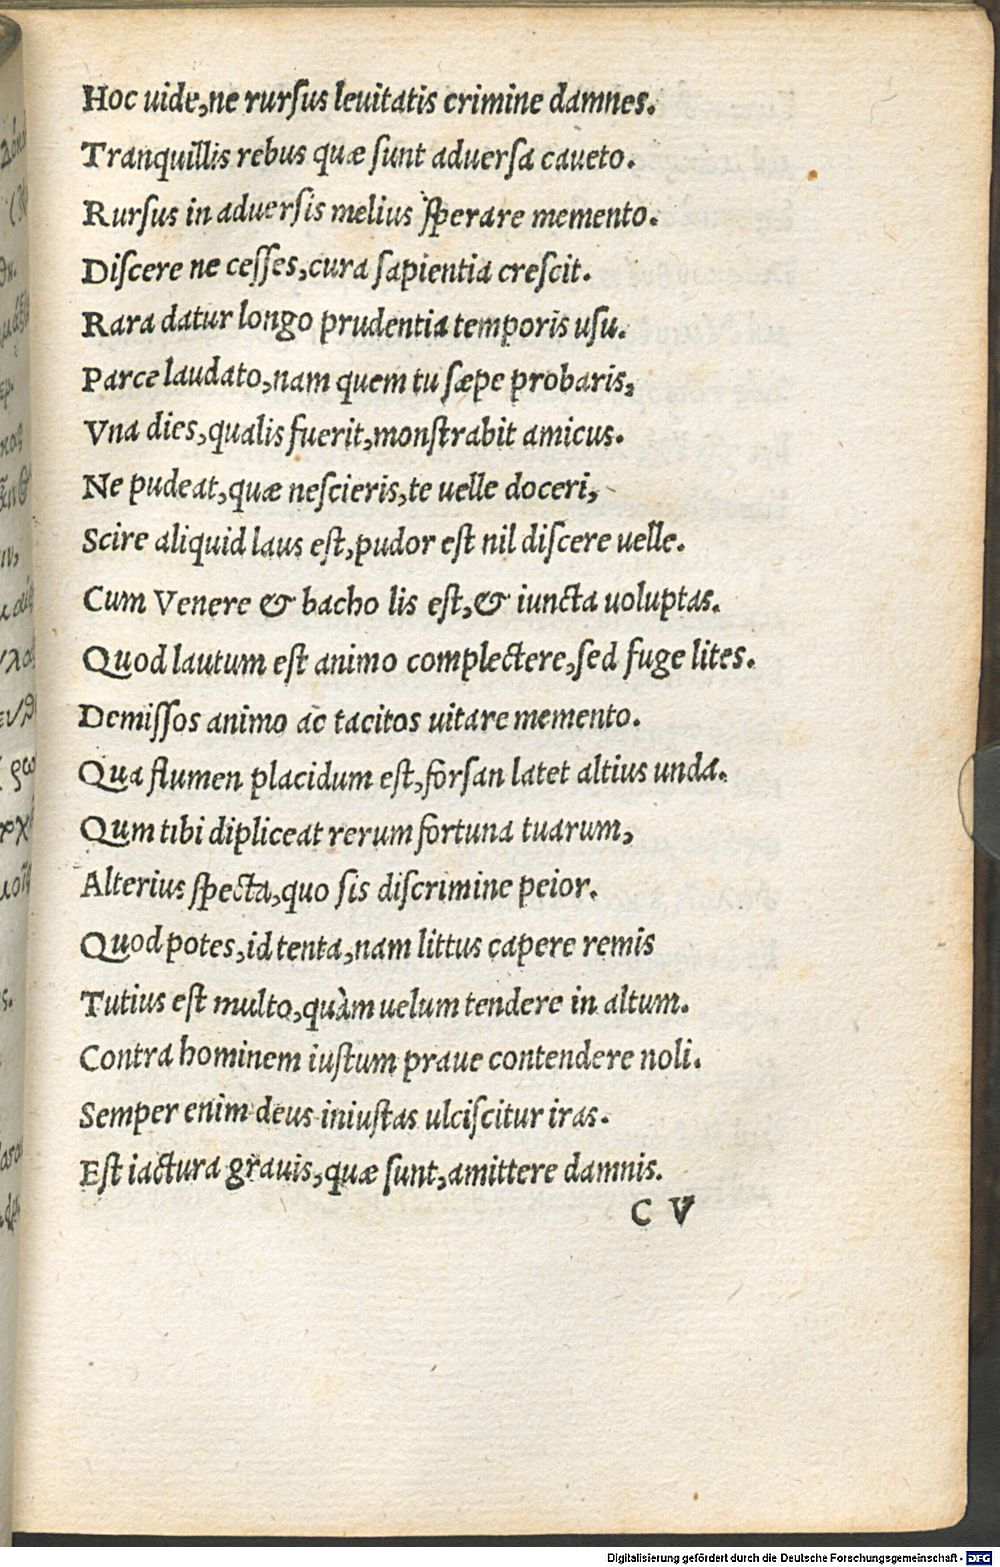 Hoc uide,ne rursus leuitatis crimine damnes.
Tranquillis rebus quæ sunt aduersa caueto.
Rursus in aduersis melius sperare memento.
Discere ne cesses,cura sapientia crescit.
Rara datur longo prudentia temporis usu.
Parce laudato,nam quem tu sæpe probaris,
Vna dies,qualis fuerit,monstrabit amicus.
Ne pudeat,quæ nescieris,te uelle doceri,
Scire aliquid laus est,pudor est nil discere uelle.
Cum Venere & bacho lis est,& iuncta uoluptas.
Quod lautum est animo complectere,sed fuge lites.
Demissos animo ac tacitos uitare memento.
Qua flumen placidum est,forsan latet altius unda.
Qum tibi dipliceat rerum fortuna tuarum,
Alterius specta,quo sis discrimine peior.
Quod potes,id tenta,nam littus capere remis
Tutius est multo,quàm uelum tendere in altum.
Contra hominem iustum praue contendere noli.
Semper enim deus iniustas ulciscitur iras.
Est iactura grauis,quæ sunt,amittere damnis.
C V
Digitalisierung gefördert durch die Deutsche Forschungsgemeinschaft - DFG